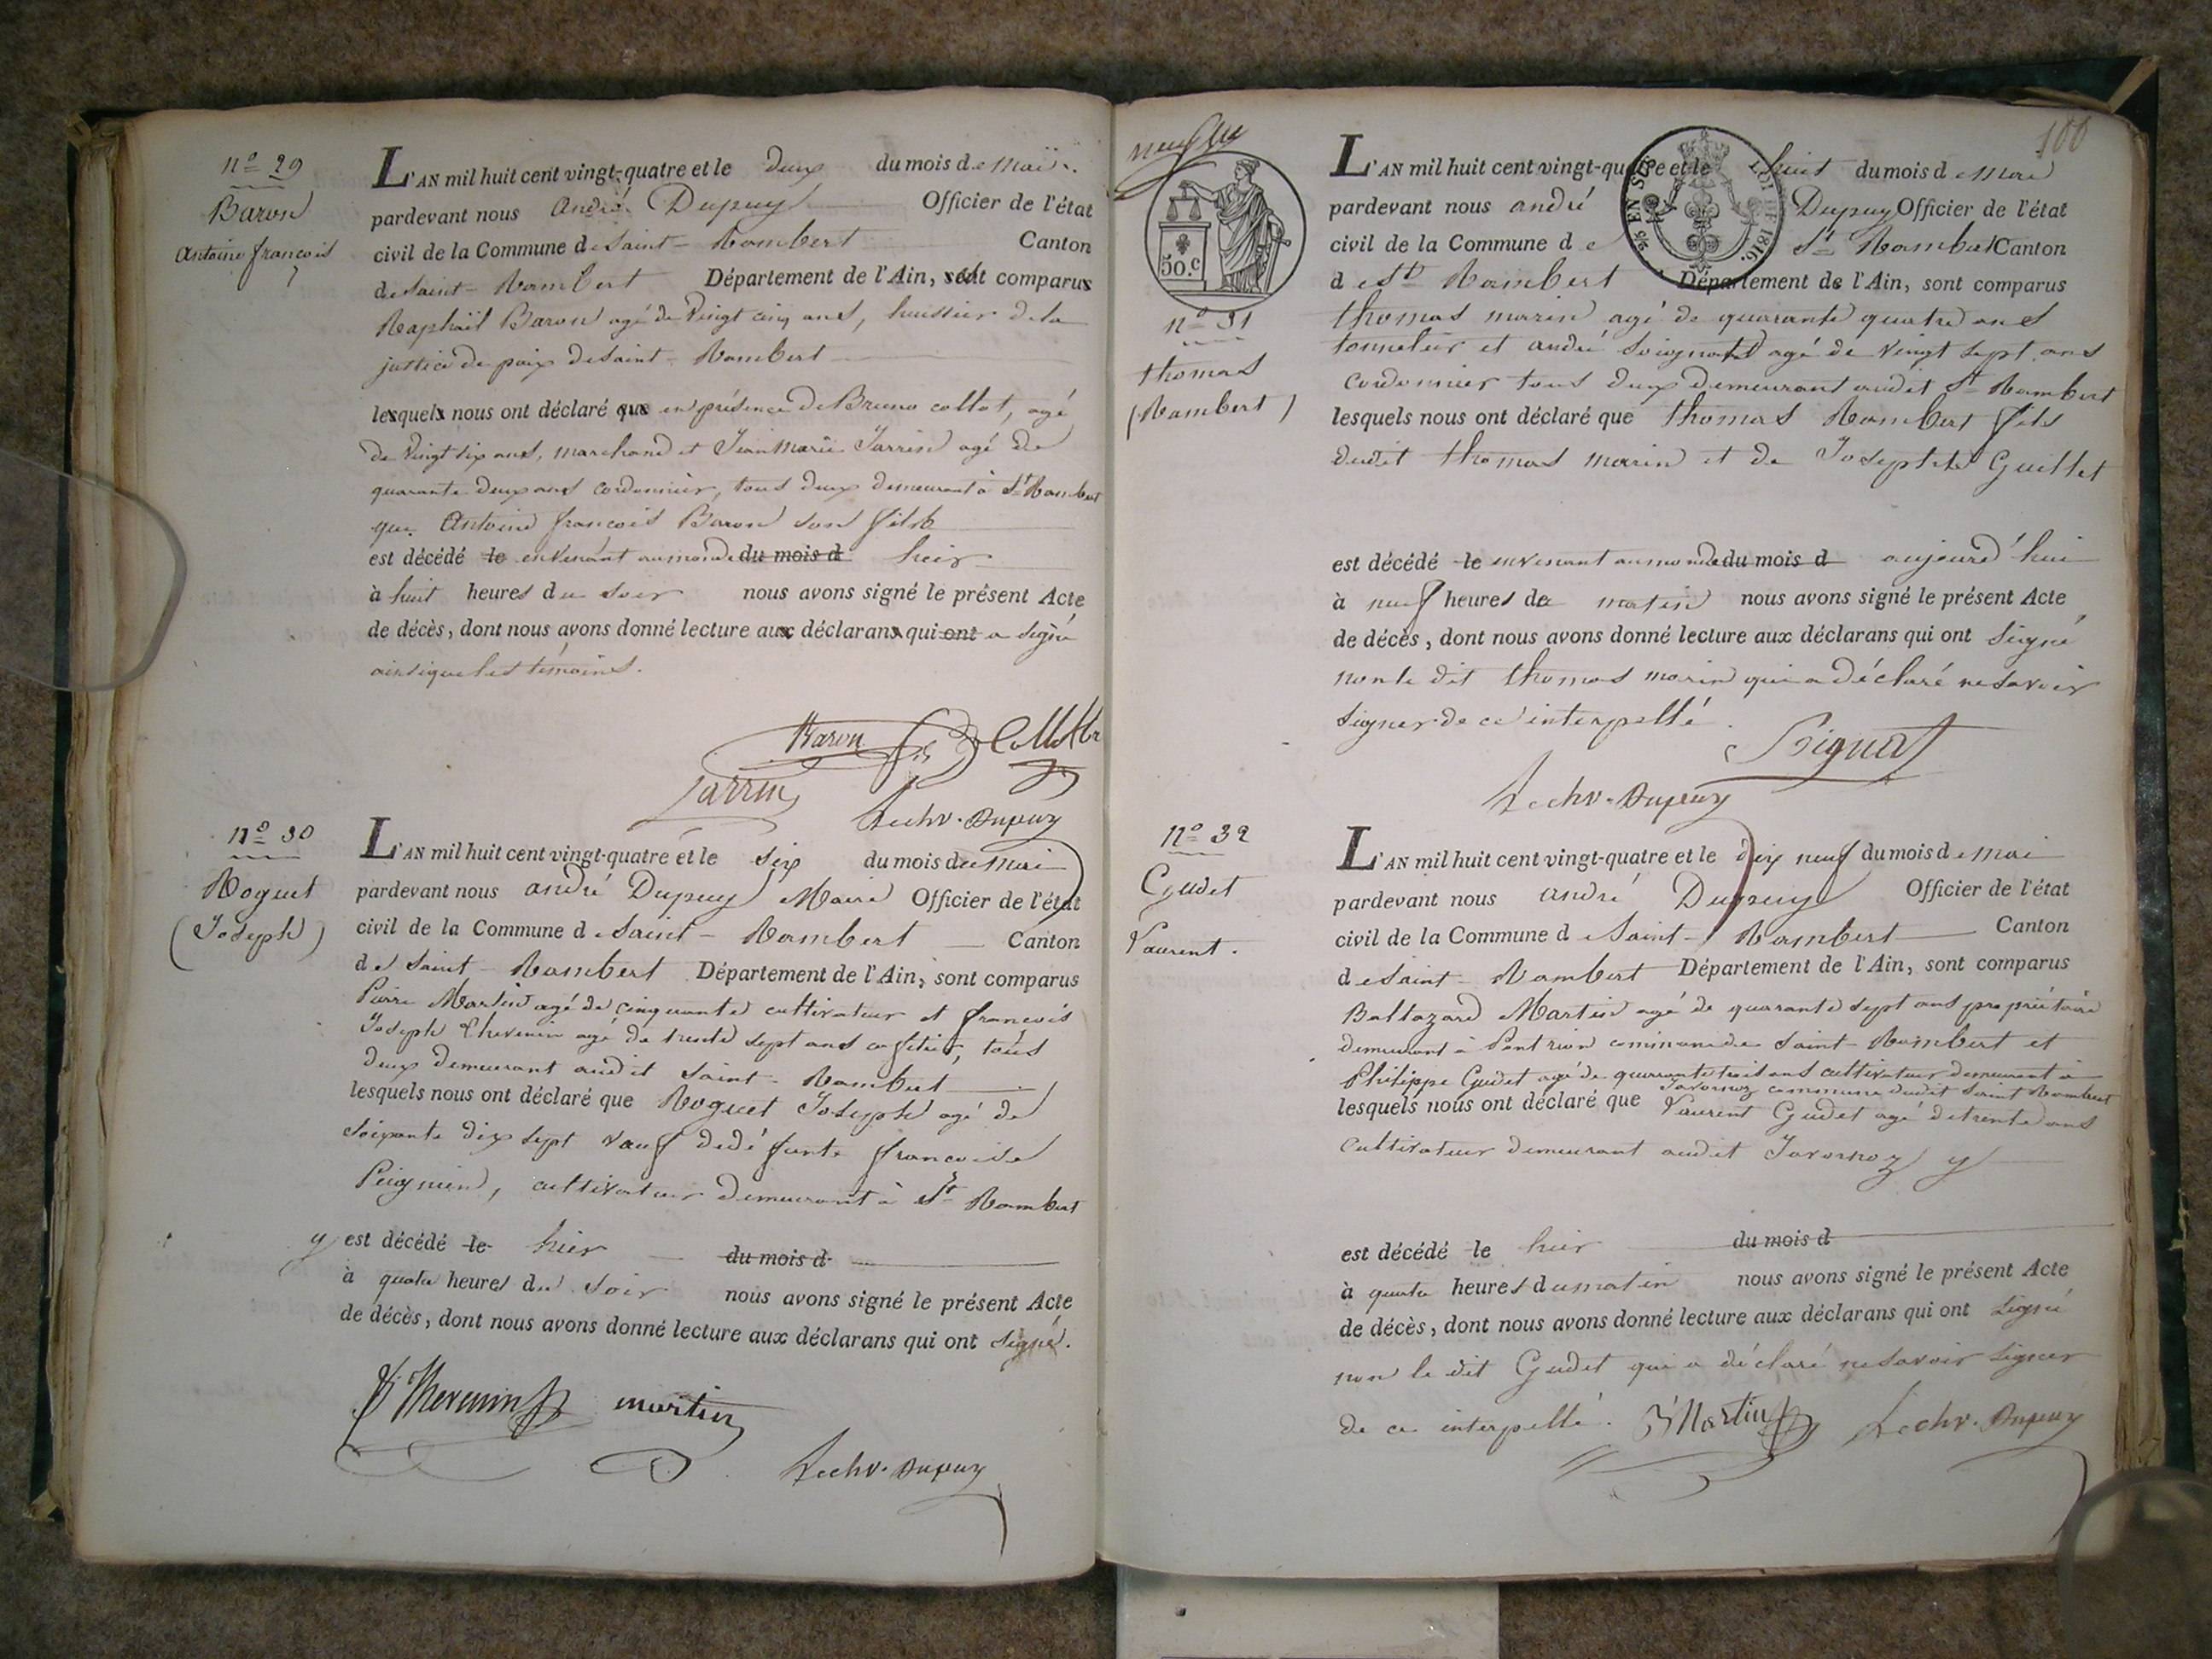 nº 29
Baron
Antoine françois
L'AN mil huit cent vingt-quatre et le deux du mois de Mai
pardevant nous André Dupuy Officier de l'état
civil de la Commune de Saint-Rambert Canton
de Saint-Rambert Département de l'Ain, est comparu
Raphaël Baron agé de Vingt cinq ans, huissier de la
justice de paix de Saint-Rambert
lequel nous ont déclaré que en présence de Bruno collot, agé
de Vingt six ans, marchand et Jean Marie Jarrin agé de
quarante deux ans cordonnier, tous deux demeurant à St Rambert
que Antoine françois Baron son fils
est décédé le en venant au monde du mois d hier
à huit heures du soir nous avons signé le présent Acte
de décès, dont nous avons donné lecture au déclaran qui ont a signé
ainsi que les témoins.
Baron Collot
Jarrin
Dupuy
nº 30
Roguet
(Joseph)
L'AN mil huit cent vingt-quatre et le six du mois de mai
pardevant nous andré Dupuy Maire Officier de l'état
civil de la Commune de Saint-Rambert Canton
de Saint-Rambert Département de l'Ain, sont comparus
Pierre Martin agé de cinquante cultivateur et françois
Joseph Thevenin agé de trente sept ans cafetier, tous
deux demeurant audit Saint-Rambert
lesquels nous ont déclaré que Roguet Joseph agé de
soixante dix sept vauf de défunte francoise
Peignien, cultivateur demeurant à St Rambert
y est décédé le hier du mois d
à quatre heures du soir nous avons signé le présent Acte
de décès, dont nous avons donné lecture aux déclarans qui ont signé.
Thevenin martin
Dupuy
100
50.c
EN SUS
LOI DE 1816.
nº 31
thomas
(Rambert)
L'AN mil huit cent vingt-quatre et le huit du mois de Mai
pardevant nous andré Dupuy Officier de l'état
civil de la Commune de St Rambert Canton
de St Rambert Département de l'Ain, sont comparus
thomas marin agé de quarante quatre ans
tonnelier et andré Soignat agé de vingt sept ans
cordonnier tous deux demeurant audit St Rambert
lesquels nous ont déclaré que thomas Rambert fils
dudit thomas marin et de Josephte Guillet
est décédé le en venant au monde du mois d aujourd'hui
à neuf heures de matin nous avons signé le présent Acte
de décès, dont nous avons donné lecture aux déclarans qui ont signé
non le dit thomas marin qui a déclaré ne savoir
signer de ce interpellé.
Soignat
Dupuy
nº 32
Gudet
Laurent.
L'AN mil huit cent vingt-quatre et le dix neuf du mois de mai
pardevant nous andré Dupuy Officier de l'état
civil de la Commune de Saint-Rambert Canton
de Saint-Rambert Département de l'Ain, sont comparus
Baltazard Martin agé de quarante sept ans propriétaire
demeurant à commune de Saint-Rambert et
Philippe Gudet agé de quarante trois ans cultivateur demeurant à
Javornoz commune dudit Saint Rambert
lesquels nous ont déclaré que Laurent Gudet agé de trente ans
cultivateur demeurant audit Javornoz y
est décédé le hier du mois d
à quatre heures du matin nous avons signé le présent Acte
de décès, dont nous avons donné lecture aux déclarans qui ont signé
non le dit Gudet qui a déclaré ne savoir signer
de ce interpellé. Martin Dupuy